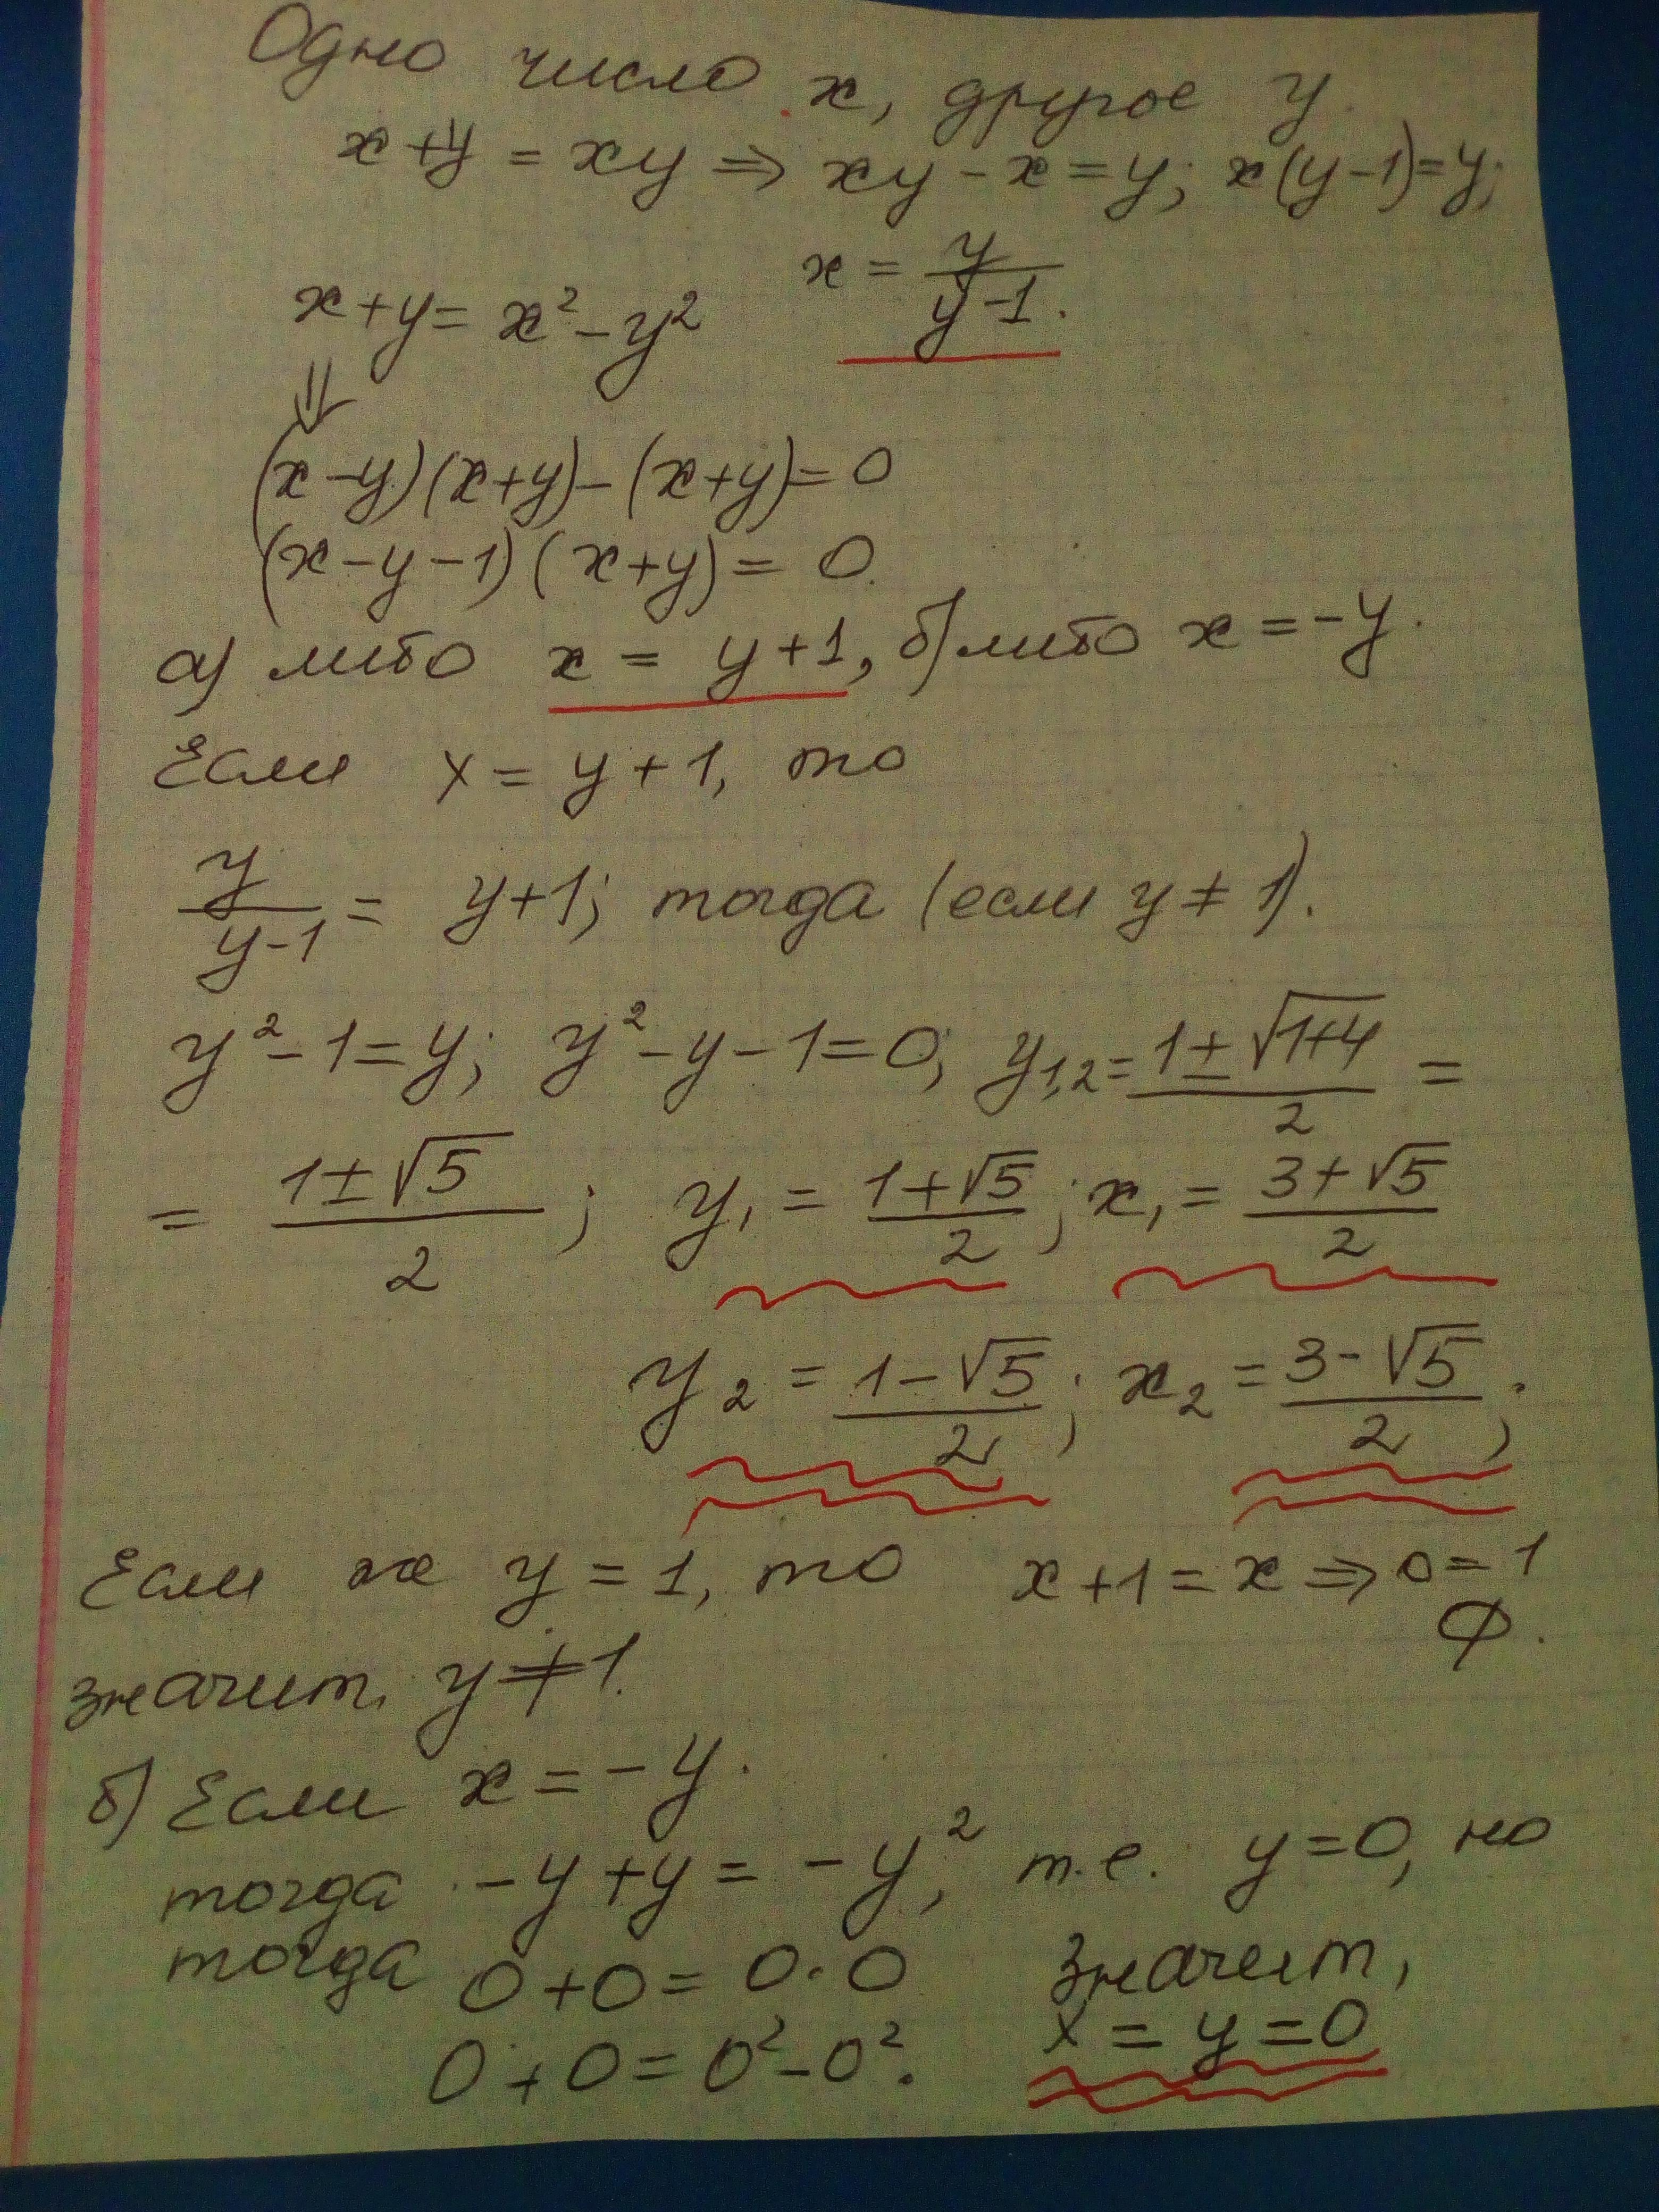 Одно число x, другое y.
x+y = xy ⇒ xy - x = y; x(y-1)=y;
x = y/(y-1).
x+y = x² - y²
⇓
(x-y)(x+y) - (x+y) = 0
(x-y-1)(x+y) = 0.
а) либо x = y+1, б) либо x = -y.
Если x = y+1, то
y/(y-1) = y+1; тогда (если y ≠ 1).
y² - 1 = y; y² - y - 1 = 0; y₁,₂ = (1±√(1+4))/2 =
= (1±√5)/2; y₁ = (1+√5)/2; x₁ = (3+√5)/2
y₂ = (1-√5)/2; x₂ = (3-√5)/2;
Если же y = 1, то x+1 = x ⇒ 0 = 1
∅.
значит, y ≠ 1.
б) Если x = -y.
тогда -y+y = -y², т.е. y=0, но
тогда 0+0 = 0·0 значит,
0+0 = 0² - 0². x = y = 0